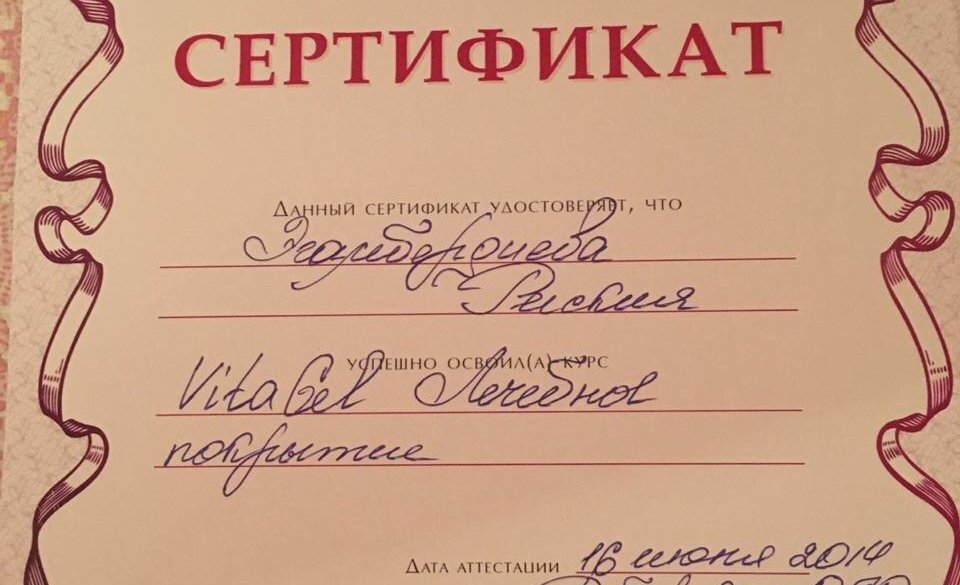 СЕРТИФИКАТ
Данный сертификат удостоверяет, что
Эгамбердиева
Рыския
успешно освоил(а) курс
VitaGel Лечебное
покрытие
Дата аттестации 16 июня 2014